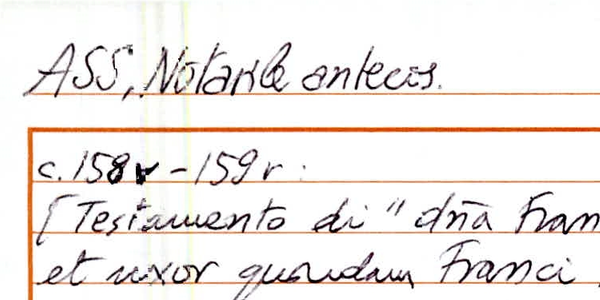 ASS, Notarile antecos.
c. 158v - 159r :
[Testamento di "dña Fran
et uxor quondam Franci